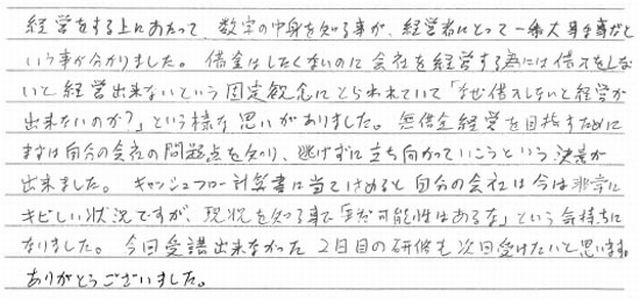 経営をする上にあたって、数字の中身を知る事が、経営者にとって一番大事な事だと
いう事が分かりました。借金はしたくないのに会社を経営する為には借入をしな
いと経営出来ないという固定観念にとらわれていて「なぜ借入しないと経営が
出来ないのか?」という様な思いがありました。無借金経営を目指すために
まずは自分の会社の問題点を知り、逃げずに立ち向かっていこうという決意が
出来ました。キャッシュフロー計算書に当てはめると自分の会社は今は非常に
キビしい状況ですが、現状を知る事で「まだ可能性はあるな」という気持ちに
なりました。今回受講出来なかった2日目の研修も次回受けたいと思います。
ありがとうございました。